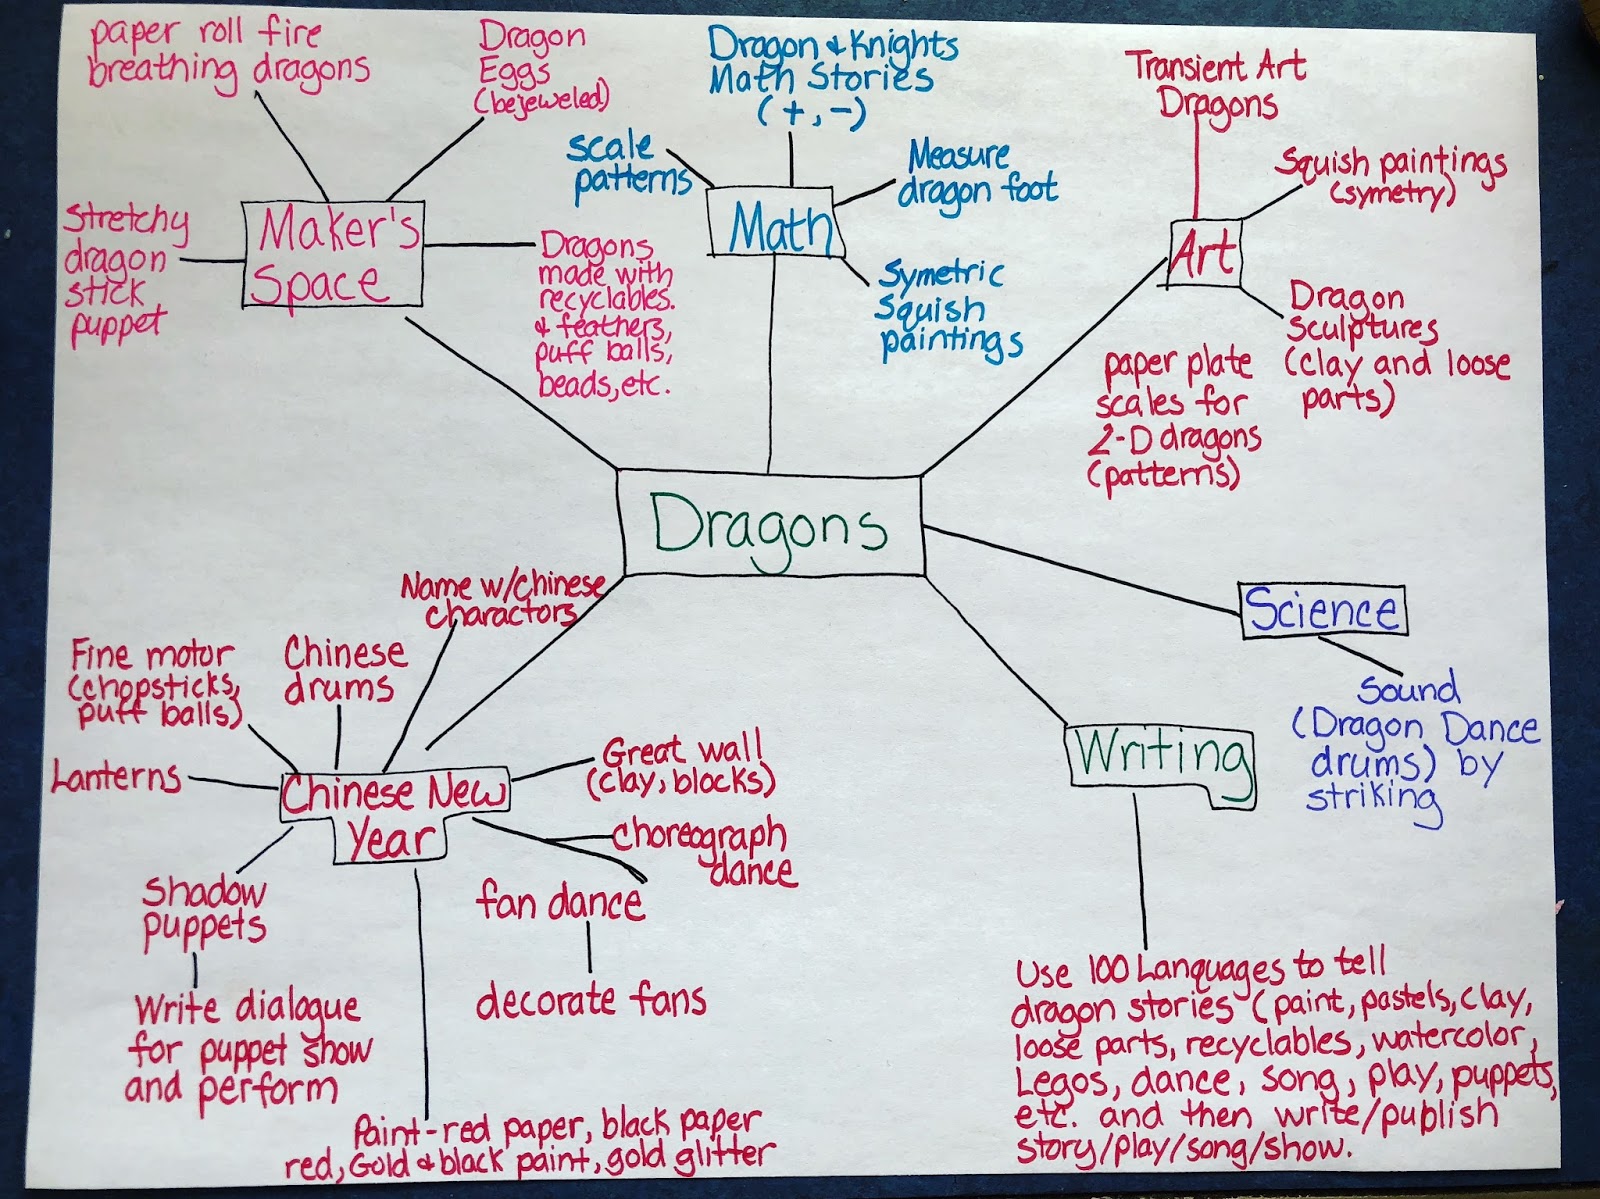 paper roll fire
breathing dragons
Dragon
Eggs
(bejeweled)
Stretchy
dragon
stick
puppet
Maker's
Space
Dragons
made with
recyclables.
& feathers,
puff balls,
beads, etc.
Dragon & Knights
Math Stories
(+, -)
scale
patterns
Measure
dragon foot
Math
Symetric
Squish
paintings
Transient Art
Dragons
Squish paintings
(symetry)
Art
Dragon
Sculptures
(clay and loose
parts)
paper plate
scales for
2-D dragons
(patterns)
Dragons
Science
Sound
(Dragon Dance
drums) by
striking
Name w/Chinese
charactors
Fine motor
(chopsticks,
puff balls)
Chinese
drums
Lanterns
Chinese New
Year
Great wall
(clay, blocks)
choreograph
dance
fan dance
decorate fans
Shadow
puppets
Write dialogue
for puppet show
and perform
Paint-red paper, black paper
red, Gold & black paint, gold glitter
Writing
Use 100 Languages to tell
dragon stories (paint, pastels, clay,
loose parts, recyclables, watercolor,
Legos, dance, song, play, puppets,
etc. and then write/publish
story/play/song/show.